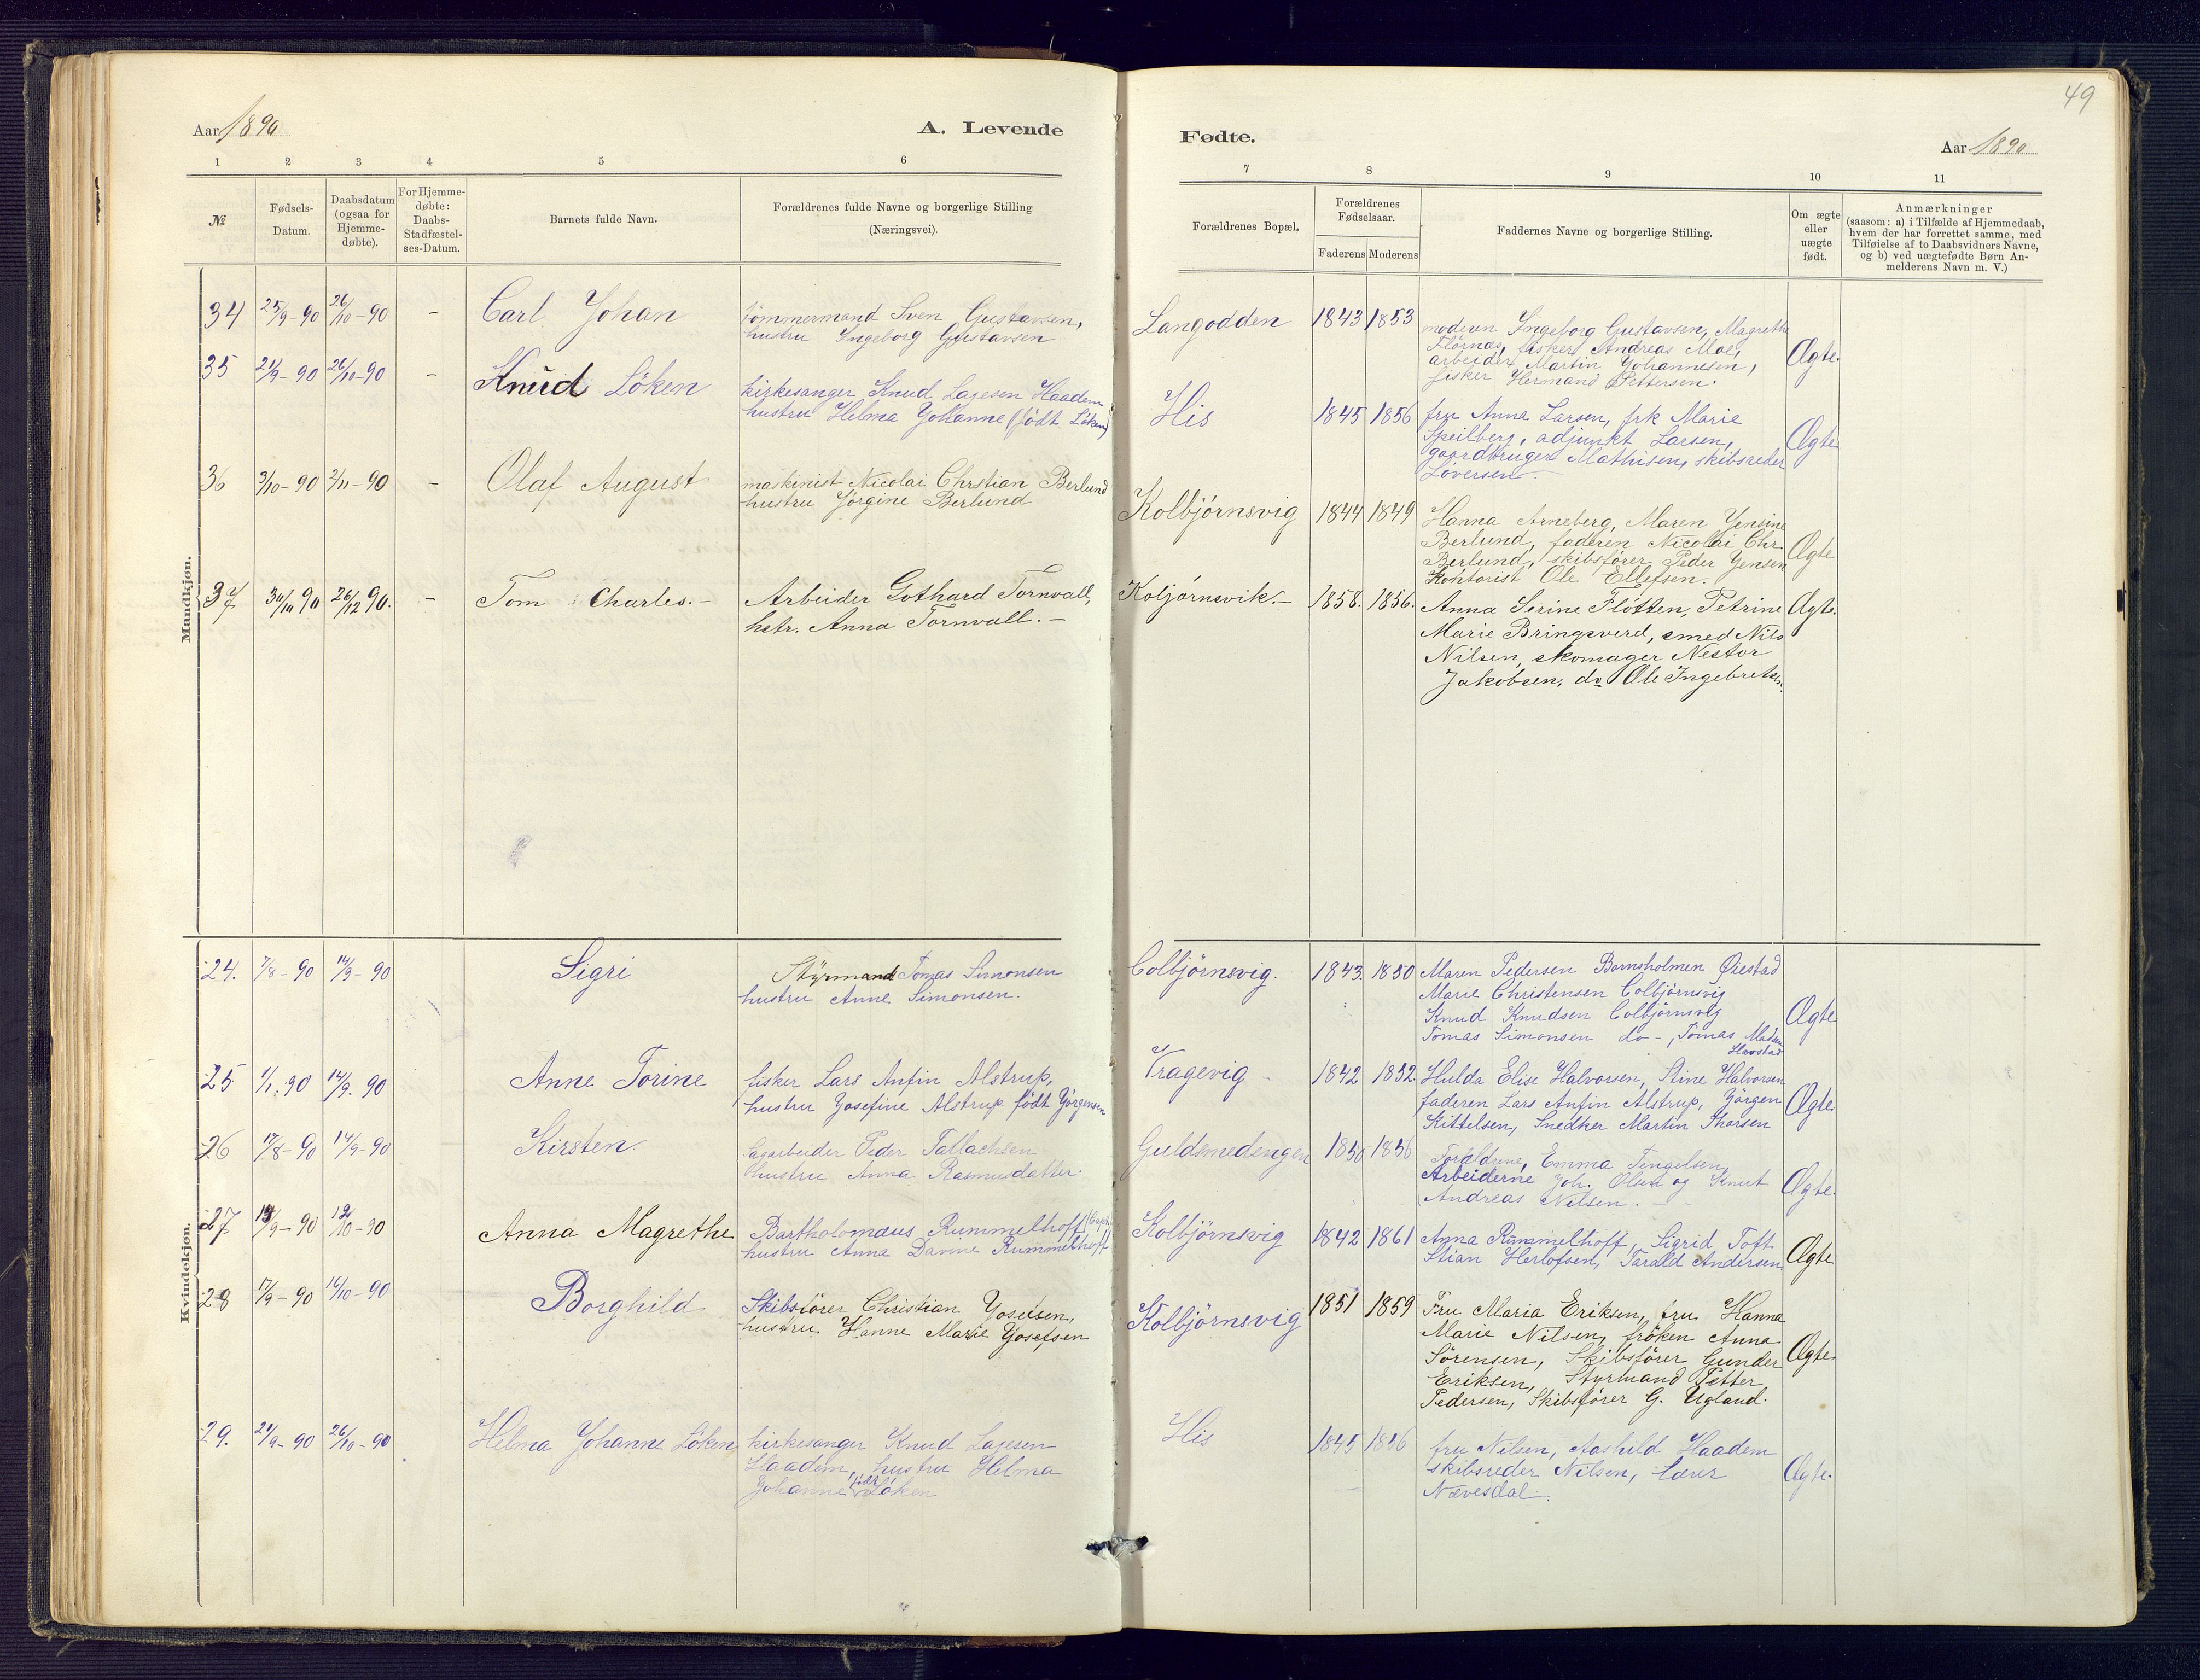 49
Aar 1890
A. Levende
Fødte.
Aar 1890
1 2 3 4 5 6
7 8 9 10 11
№
Fødsels-
Datum.
Daabsdatum
(ogsaa for
Hjemme-
døbte).
For Hjemme-
døbte:
Daabs-
Stadfæstel-
ses-Datum.
Barnets fulde Navn.
Forældrenes fulde Navne og borgerlige Stilling
(Næringsvei).
Forældrenes Bopæl.
Forældrenes
Fødselsaar.
Faderens Moderens
Faddernes Navne og borgerlige Stilling.
Om ægte
eller
uægte
født.
Anmærkninger
(saasom: a) i Tilfælde af Hjemmedaab,
hvem der har forrettet samme, med
Tilføielse af to Daabsvidners Navne,
og b) ved uægtefødte Børn An-
melderens Navn m. V.)
Mandkjøn.
34 25/9-90 26/10-90 - Carl Johan
tömmermand Sven Gustavsen,
hustru Ingeborg Gustavsen
Langodden 1843 1853
moderen Ingeborg Gustavsen, Magrethe
fisker Andreas Moe,
arbeider Martin Johannesen,
fisker Hermand Pettersen.
Ægte.
35 21/9-90 26/10-90 - Knud Löken
kirkesanger Knud Lajesen Haadem
hustru Helma Johanne (födt Löken)
His 1845 1856
fru Anna Larsen, frk Marie
Speilberg, adjunkt Larsen,
gaardbruger Mathisen, skibsreder
Löversen.
Ægte
36 3/10-90 2/11-90 - Olaf August
maskinist Nicolai Chrstian Berlund
hustru Jörgine Berlund
Kolbjörnsvig 1844 1849
Hanna Arneberg, Maren Jensine
Berlund, faderen Nicolai Chr.
Berlund, skibsförer Peder Jensen
Kontorist Ole Ellefsen.
Ægte
37 90 26/12 90. - Tom Charles.-
Arbeider Gothard Tornvall,
hstr. Anna Tornvall.-
Koljörnsvik.- 1858. 1856.
Anna Serine Flötten, Petrine
Marie Bringsverd, smed Nils
Nilsen, skomager Nestor
Jakobsen, do Ole Ingebretsen.
Ægte.
Kvindekjøn.
24. 7/8-90 14/9-90 Sigri
Styrmand Tomas Simonsen
hustru Anne Simonsen.
Colbjörnsvig. 1843. 1850
Maren Pedersen Bornsholmen Ørestad
Marie Christensen Colbjörnsvig
Knud Knudsen Colbjörnsvig
Tomas Simonsen do -, Tomas
Ægte
25 1/1.90 14/9.90 Anne Torine
fisker Lars Anfin Alstrup,
hustru Josefine Alstrup födt Jörgensen
Vragevig - 1842 1852.
Hulda Elise Halvorsen, Stine Halvorsen
faderen Lars Anfin Alstrup, Jörgen
Kittelsen, Snedker Martin Thorsen
Ægte.
26 17/8-90 14/9-90 Kirsten
Sagarbeider Peder Tallachsen
hustru Anna Rasmusdatter.
Guldsmedengen 1850 1856
Forældrene, Emma Tengelsen,
Arbeiderne Joh. Olsen og Knut
Andreas Nilsen.-
Ægte.
27 /9-90 12/10-90 Anna Magrethe
Bartholomæus Rummelhoff
hustru Anna Davine Rummelhoff
Kolbjörnsvig 1842 1861
Anna Rummelhoff, Sigrid Toft
Stian Herlofsen, Tarald Andersen
Ægte
28 17/9-90 16/10-90 Borghild
Skibsförer Christian Josefsen,
hustru Hanne Marie Josefsen
Kolbjörnsvig 1851 1859
Fru Maria Eriksen, fru Hanna
Marie Nilsen, fröken Anna
Sörensen, Skibsförer Gunder
Eriksen, Styrmand Petter
Pedersen, Skibsförer G. Ugland.
Ægte.
29. 21/9-90 26/10-90 Helma Johanne Löken
kirkesanger Knud Lajesen
Haadem, hustru Helma
Johanne födt Löken
His 1845 1856
fru Nilsen, Aashild Haadem
skibsreder Nilsen, lærer
Nævesdal.
Ægte.